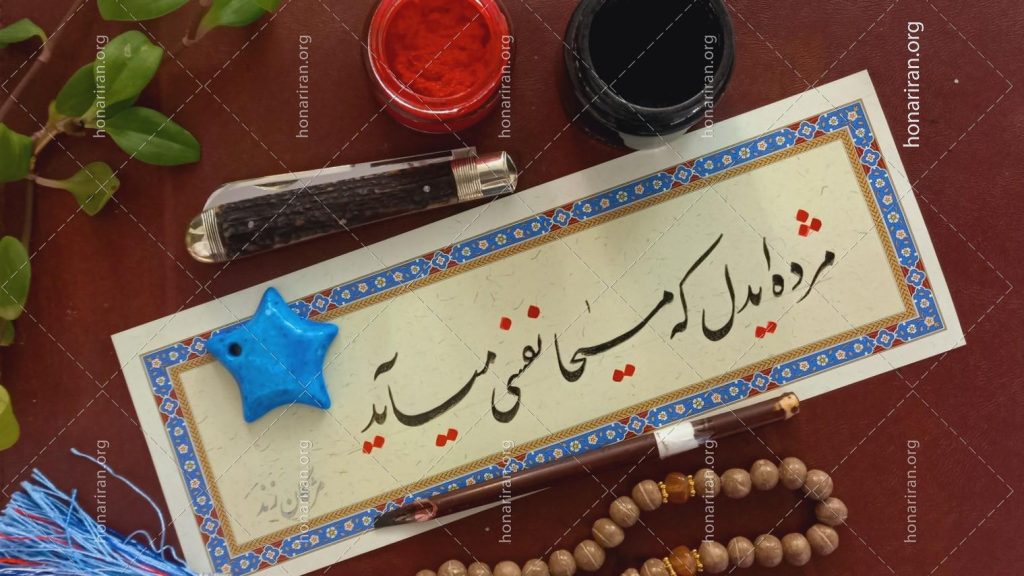 مژده ای دل که مسیحا نفسی می‌آید
honariran.org
honariran.org
honariran.org
honariran.org
honariran.org
honariran.org
honariran.org
honariran.org
honariran.org
honariran.org